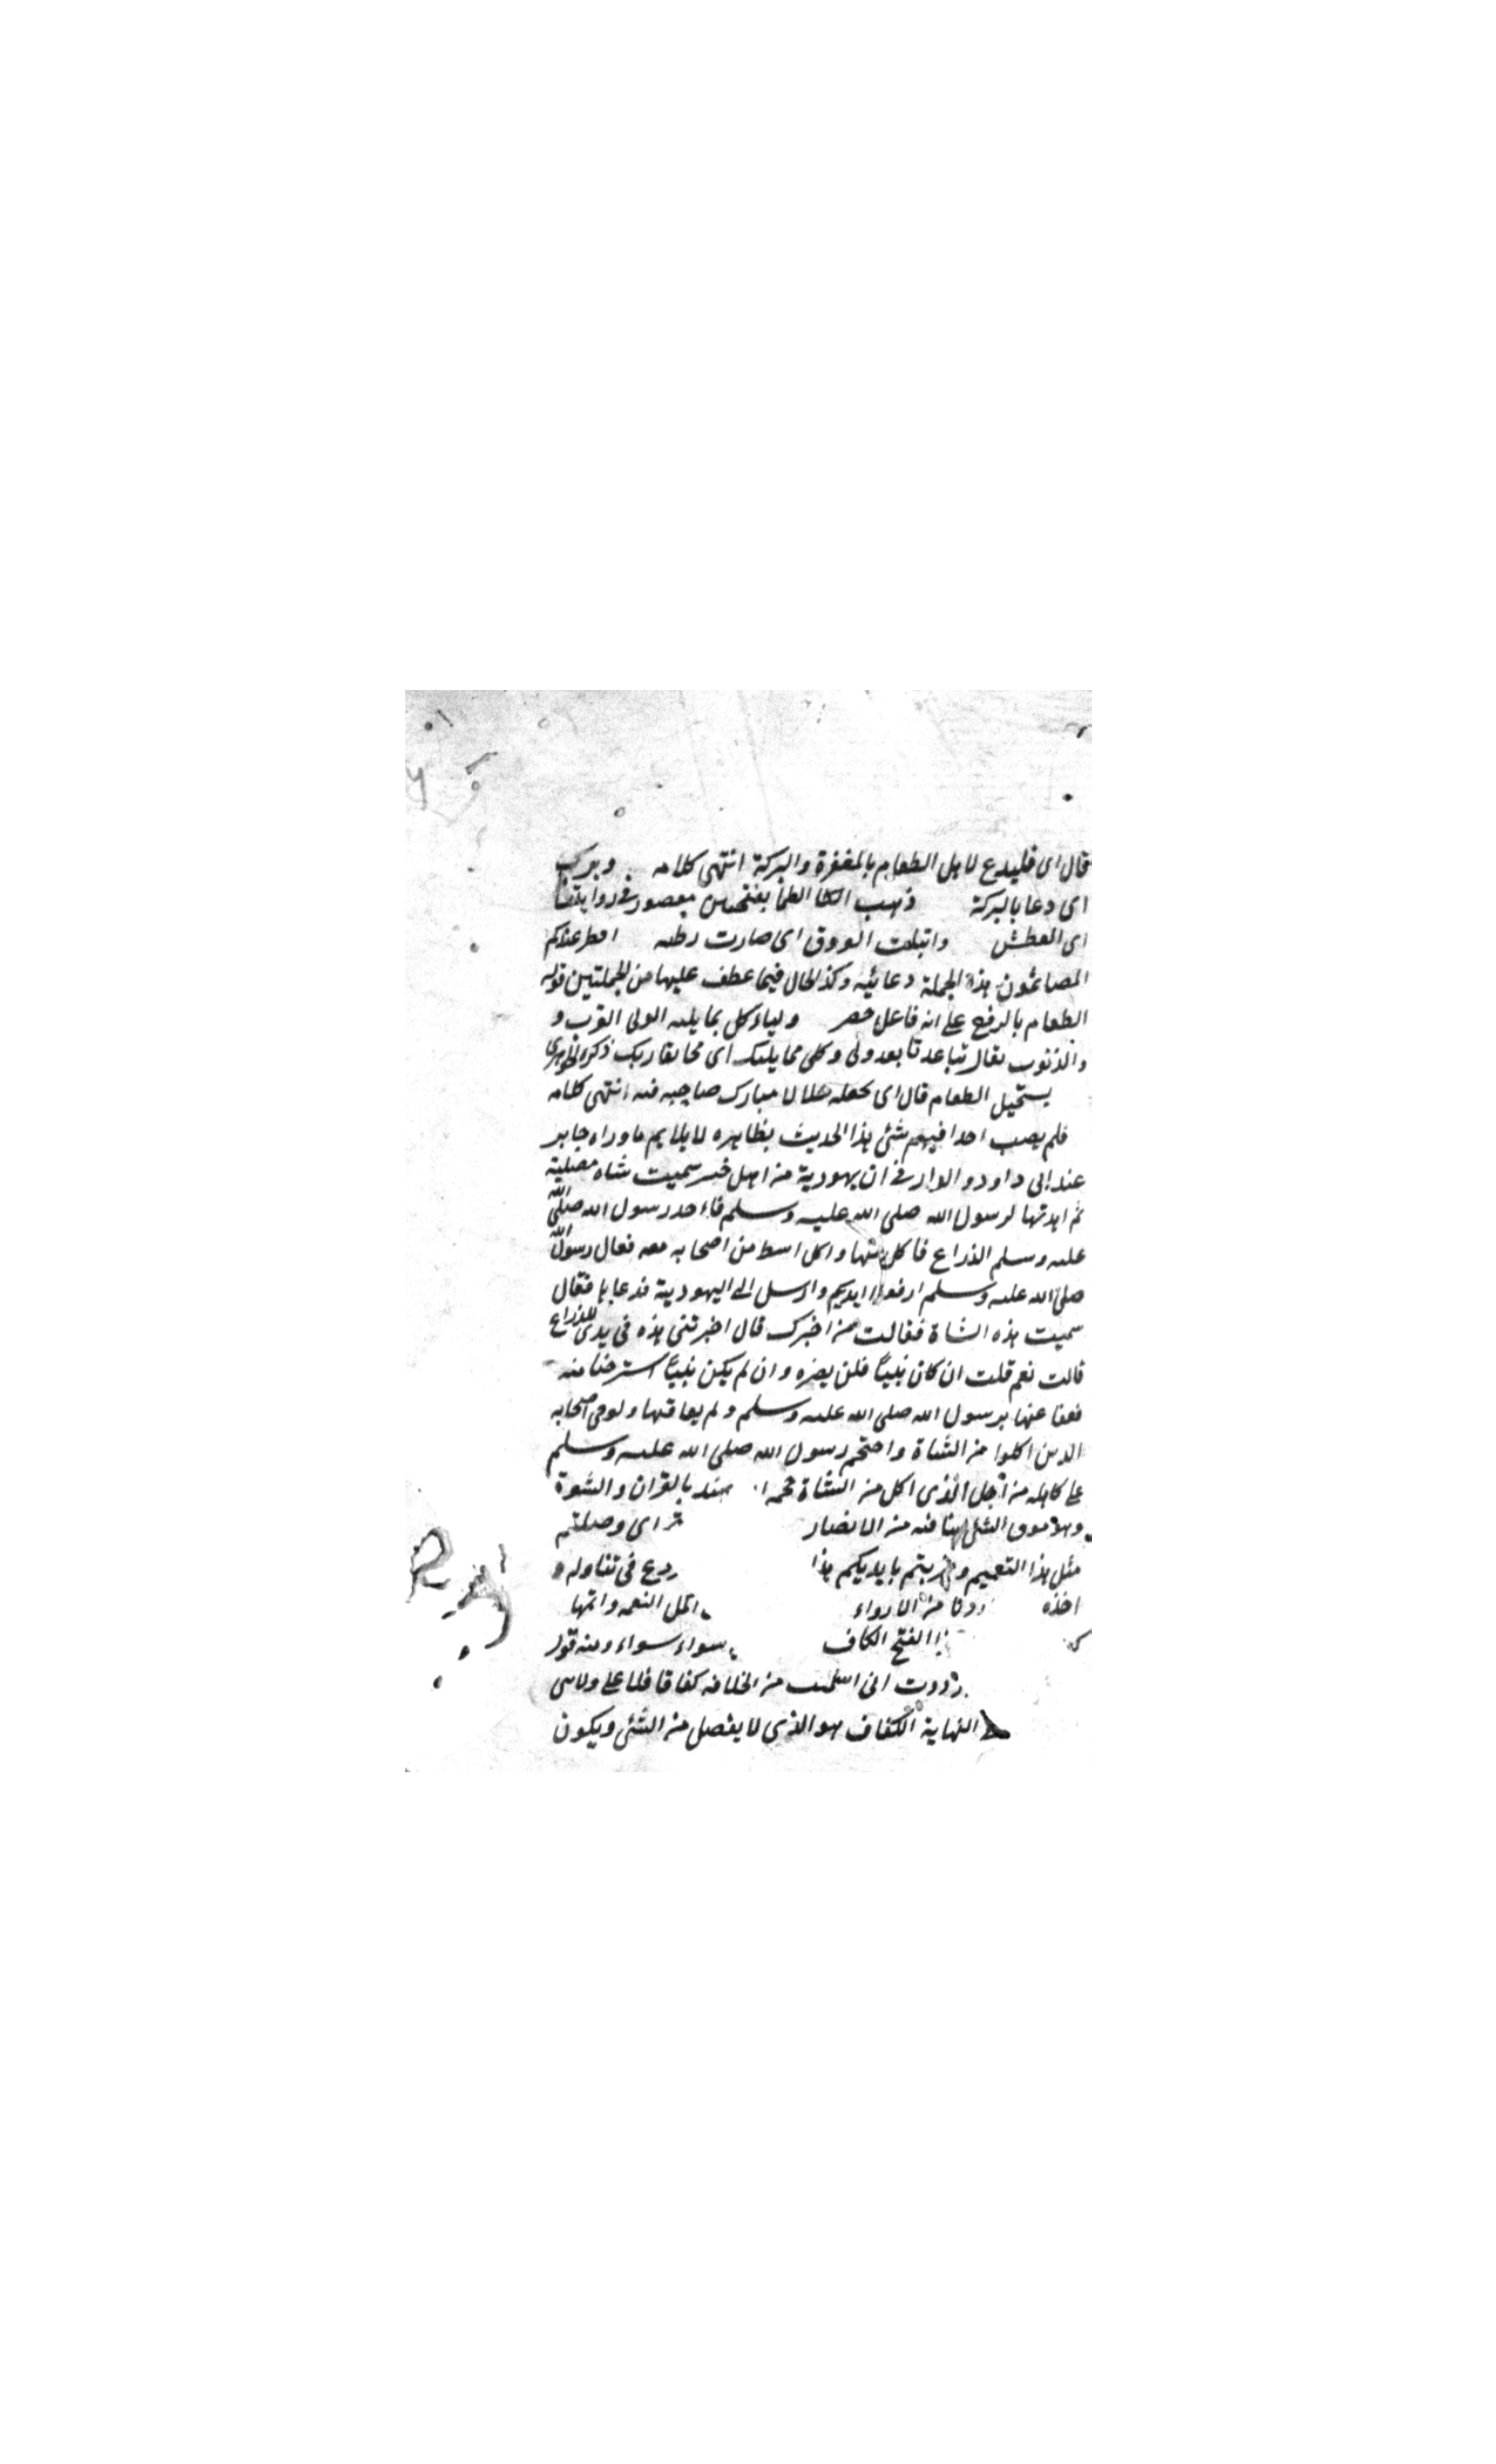 قال اى فليدع لاهل الطعام بالمغفرة والبركة انتهى كلامه وبرك
اى دعا بالبركة ذهب الظما الظمأ بفتحتين مقصور فى روايتنا
اى العطش وابتلت العروق اى صارت رطبه افطر عندكم
الصائمون هذه الجملة دعائيه وكذا الحال فيما عطف عليها من الجملتين قوله
الطعام بالرفع على انه فاعل حضر ولياءكل بما يليه الولى القرب و
والذنوب يقال تباعدنا بعد ولى وكل مما يليك اى مما يقاربك ذكره الجوهرى
يستحيل الطعام قال اى يجعله حلالا مبارك صاحبه فيه انتهى كلامه
فلم يصب احدا فيهم شئ هذا الحديث بظاهره لا يلايم ما رواه جابر
عند ابى داود والوارد فى ان يهودية من اهل خيبر سميت شاه مصلية
ثم اهدتها لرسول الله صلى الله عليه وسلم فاءخد رسول الله صلى الله
عليه وسلم الذراع فاكل منها واكل رهط من اصحابه معه فقال رسول الله
صلى الله عليه وسلم ارفعوا ايديكم وارسل الى اليهودية فدعاها فقال
سميت هذه الشاة فقالت من اخبرك قال اخبرتنى هذه فى يدى للذراع
قالت نعم قلت ان كان نبيا فلن يضره وان لم يكن نبيا استرحنا منه
فعفا عنها رسول الله صلى الله عليه وسلم ولم يعاقبها وتوفى اصحابه
الدين اكلوا من الشاة واحتجم رسول الله صلى الله عليه وسلم
على كاهله من اجل الذى اكل من الشاة حجمه هند بالقرن والشفرة
وهو مولى لبنى بياضه من الانصار اى وصلتم
مثل هذا التعميم وضربتم بايديكم هذا فى تناوله و
اخذه من الارواء اكمل النعمه واتمها
الفتح الكاف سواء سواء ومنه قول
وددت انى سلمت من الخلافه كفافا لا على ولا لى
النهاية الكفاف هو الذى لا يفضل من الشئ ويكون